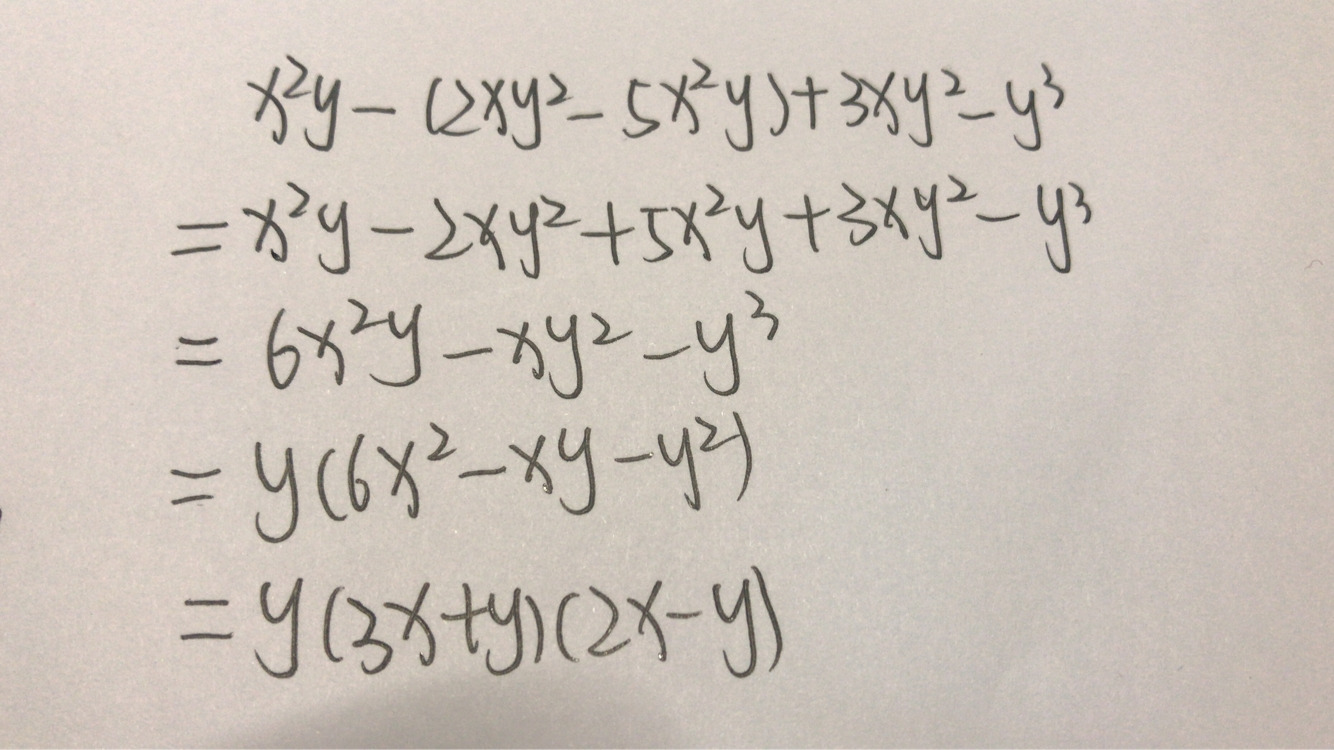 x²y - (2xy² - 5x²y) + 3xy² - y³
= x²y - 2xy² + 5x²y + 3xy² - y³
= 6x²y - xy² - y³
= y(6x² - xy - y²)
= y(3x+y)(2x-y)